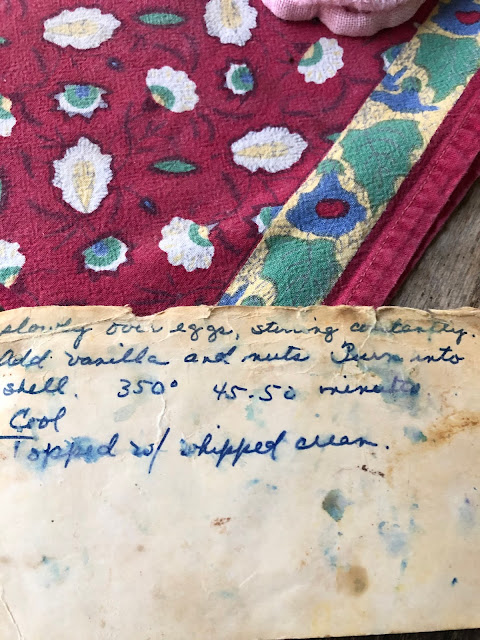 slowly over eggs, stirring constantly.
Add vanilla and nuts Pour into
shell. 350° 45-50 minutes
Cool
Topped w/ whipped cream.